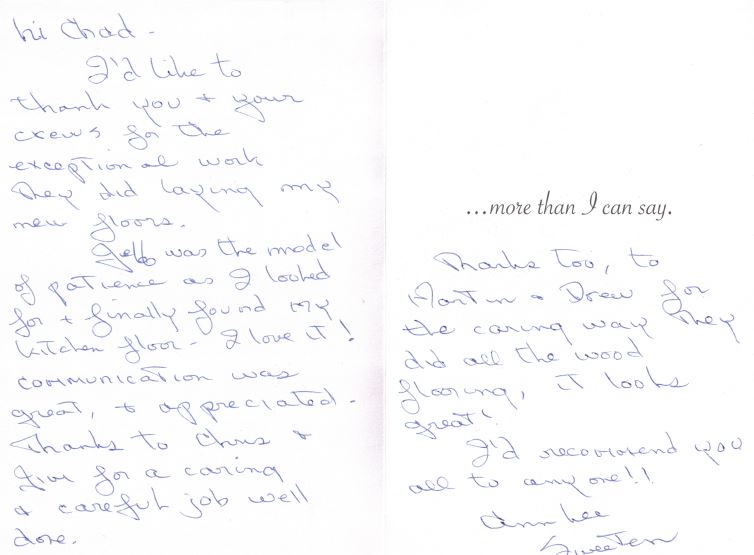 hi Chad -
I'd like to
thank you + your
crews for the
exceptional work
they did laying my
new floors.
Jeff was the model
of patience as I looked
for + finally found my
kitchen floor - I love it!
communication was
great, + appreciated -
Thanks to Chris +
Jim for a caring
+ careful job well
done.
...more than I can say.
Thanks too, to
Martin + Drew for
the caring way they
did all the wood
flooring, it looks
great!
I'd recommend you
all to anyone!!
Ann Lee
Sweeten